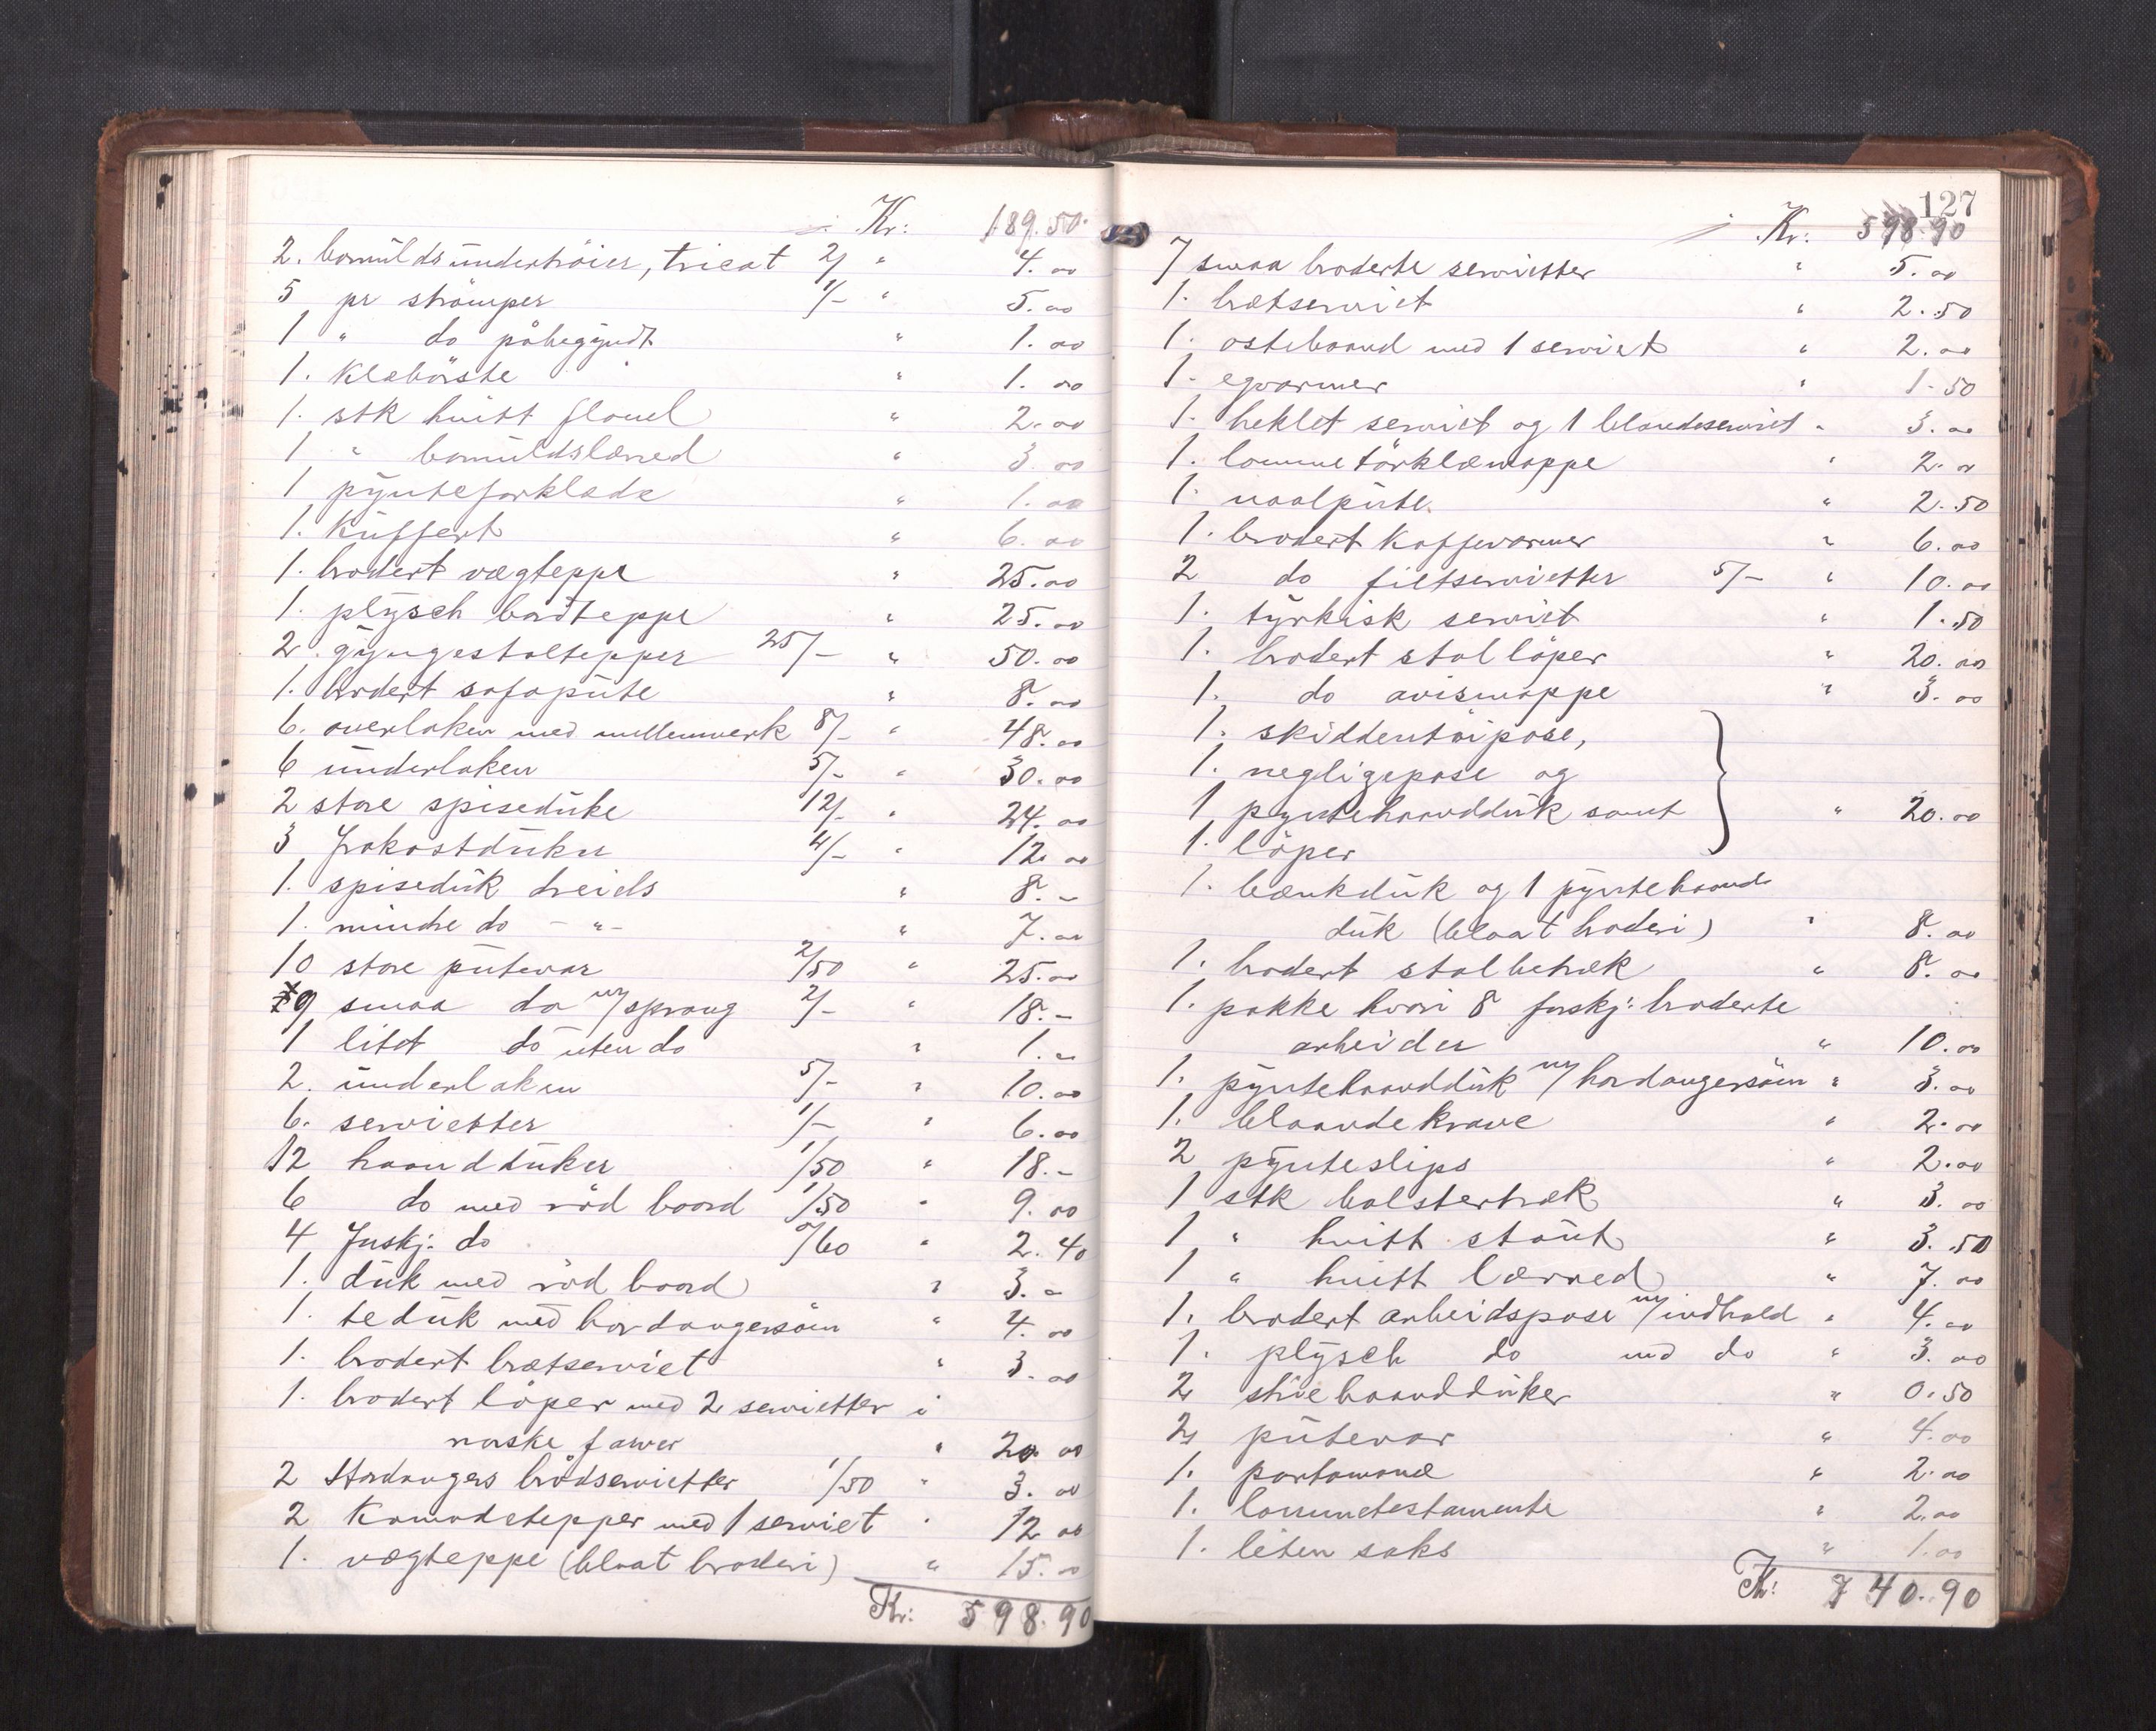 Kr: 189.50
2. bomuldsundertröier, tricot 2/ " 4.00
5 pr strömper 1/- " 5.00
1 " do påbegyndt " 1.00
1. Klæbörste " 1.00
1. stk hvitt flonel " 2.00
1 " bomuldslærred " 3.00
1 pynteforklæde " 1.00
1. Kuffert " 6.00
1. brodert vægteppe " 25.00
1. plysch bordteppe " 25.00
2. gyngestoltepper 25/- " 50.00
1. brodert sofapute " 8.00
6. overlaken med mellemverk 8/- " 48.00
6 underlaken 5/- " 30.00
2 store spiseduke 12/- " 24.00
3 frokostduker 4/- " 12.00
1. spiseduk dreiels " 8.-
1. mindre do - " - " 7.00
10 store putevar 2/50 " 25.00
9 smaa do m/ sprang 2/- " 18.-
1 litet do uten do " 1.00
2. underlaken 5/- " 10.00
6. servietter 1/- " 6.00
12 haandduker 1/50 " 18.-
6 do med röd boord 1/50 " 9.00
4 forskj. do 0/60 " 2.40
1. duk med röd boord " 3.-
1. teduk med hardangersöm " 4.00
1. brodert brætserviet " 3.00
1. brodert löper med 2 servietter i
norske farver " 20.00
2 Hardangers brödservietter 1/50 " 3.00
2 Komodetepper med 1 serviet " 12.00
1. vægteppe (blaat broderi) " 15.00
Kr: 598.90
127
Kr: 598.90
7 smaa broderte servietter " 5.00
1. brætserviet " 2.50
1. ostebaand med 1 serviet " 2.00
1. egvarmer " 1.50
1. heklet serviet og 1 blondeserviet " 3.00
1. lommetörklæmappe " 2.00
1. naalpute " 2.50
1. brodert Kaffevarmer " 6.00
2 do filtservietter 5/- " 10.00
1. tyrkisk serviet " 1.50
1. brodert stollöper " 20.00
1. do avismappe " 3.00
1. skiddentöipose,
1. negligepose og
1 pyntehaandduk samt " 20.00
1. löper
1. bænkduk og 1 pyntehaand-
duk (blaat broderi) " 8.00
1. brodert stolbetræk " 8.00
1. pakke hvori 8 forskj. broderte
arbeider " 10.00
1. pyntehaandduk m/ hardangersöm " 3.00
1. blondekrave " 2.00
2 pynteslips " 2.00
1 stk bolstertræk " 3.00
1 " hvitt stout " 3.50
1 " hvitt lærred " 7.00
1. brodert arbeidspose m/ indhold " 4.00
1. plysch do med do " 3.00
2 striehaandduker " 0.50
2 putevar " 4.00
1. portamoné " 2.00
1. lommetestamente " 2.00
1. liten saks " 1.00
Kr: 740.90